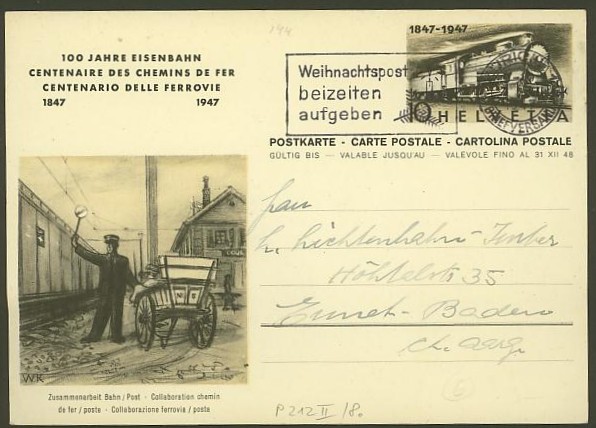 144
1847-1947
100 JAHRE EISENBAHN
CENTENAIRE DES CHEMINS DE FER
CENTENARIO DELLE FERROVIE
1847 1947
Weihnachtspost
beizeiten
aufgeben
10 HELVETIA
BRIEFVERSAND
POSTKARTE - CARTE POSTALE - CARTOLINA POSTALE
GÜLTIG BIS — VALABLE JUSQU'AU — VALEVOLE FINO AL 31 XII 48
Frau
Lichtenhahn-
35
Ennet-Baden
Aarg.
WK
Zusammenarbeit Bahn / Post - Collaboration chemin
de fer / poste - Collaborazione ferrovia / posta
P 212 II / 8.